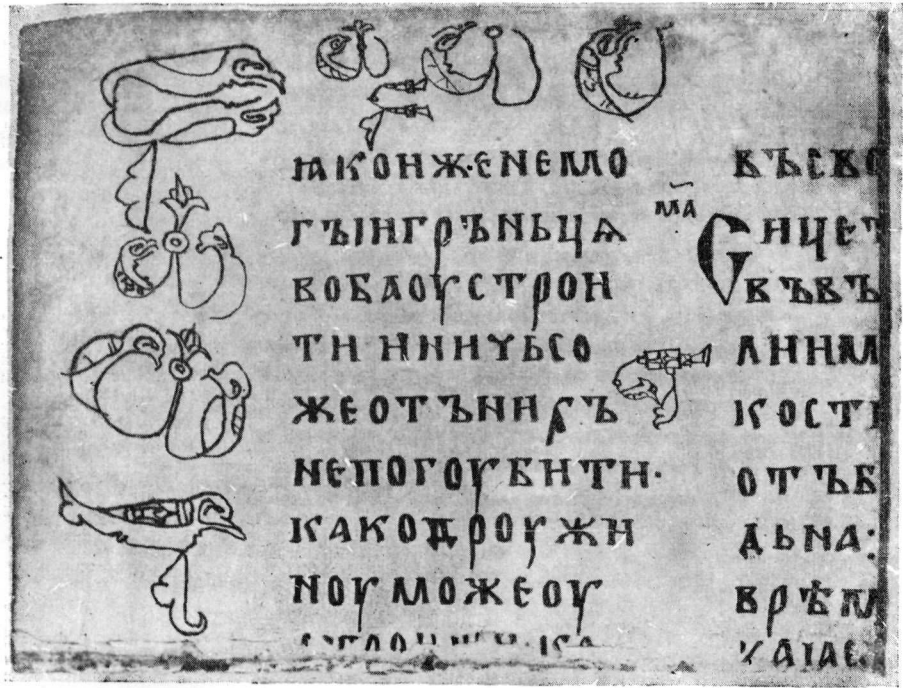 ꙗконжєнємо
гъінгръньцѧ
вобаоустрои
ти·нничьсо
жєотъниръ
нєпогоубити·
какодроужи
ноуможєоу
въсво
ма
Сицєт
въвъ
лиим
кост
отъб
дьна:
врѣм